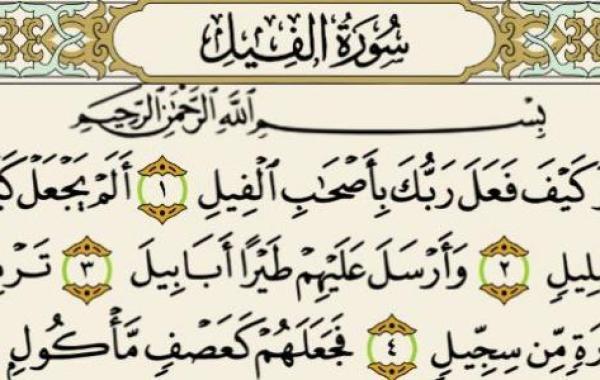 سُورَةُ الفِيلِ
بِسْمِ ٱللَّهِ ٱلرَّحْمَٰنِ ٱلرَّحِيمِ
كَيْفَ فَعَلَ رَبُّكَ بِأَصْحَٰبِ ٱلْفِيلِ ١ أَلَمْ يَجْعَلْ
٢ وَأَرْسَلَ عَلَيْهِمْ طَيْرًا أَبَابِيلَ ٣
مِّن سِجِّيلٍ ٤ فَجَعَلَهُمْ كَعَصْفٍ مَّأْكُولٍ